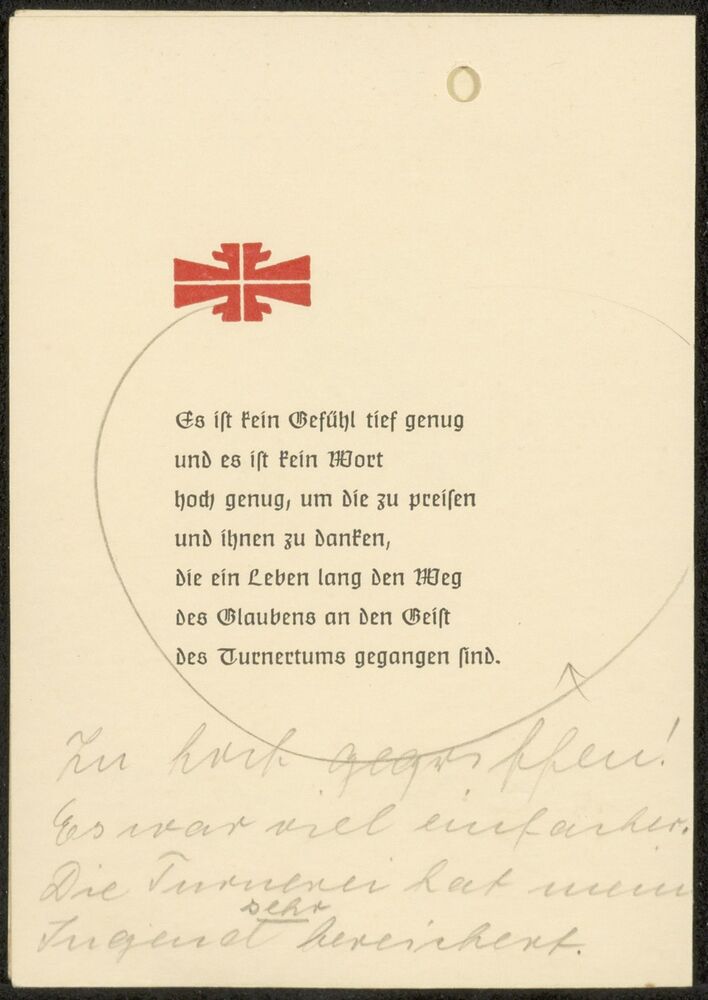 Es ist kein Gefühl tief genug
und es ist kein Wort
hoch genug, um die zu preisen
und ihnen zu danken,
die ein Leben lang den Weg
des Glaubens an den Geist
des Turnertums gegangen sind.
Zu hoch gegriffen!
Es war viel einfacher.
Die Turnerei hat mein
sehr
Jugend bereichert.